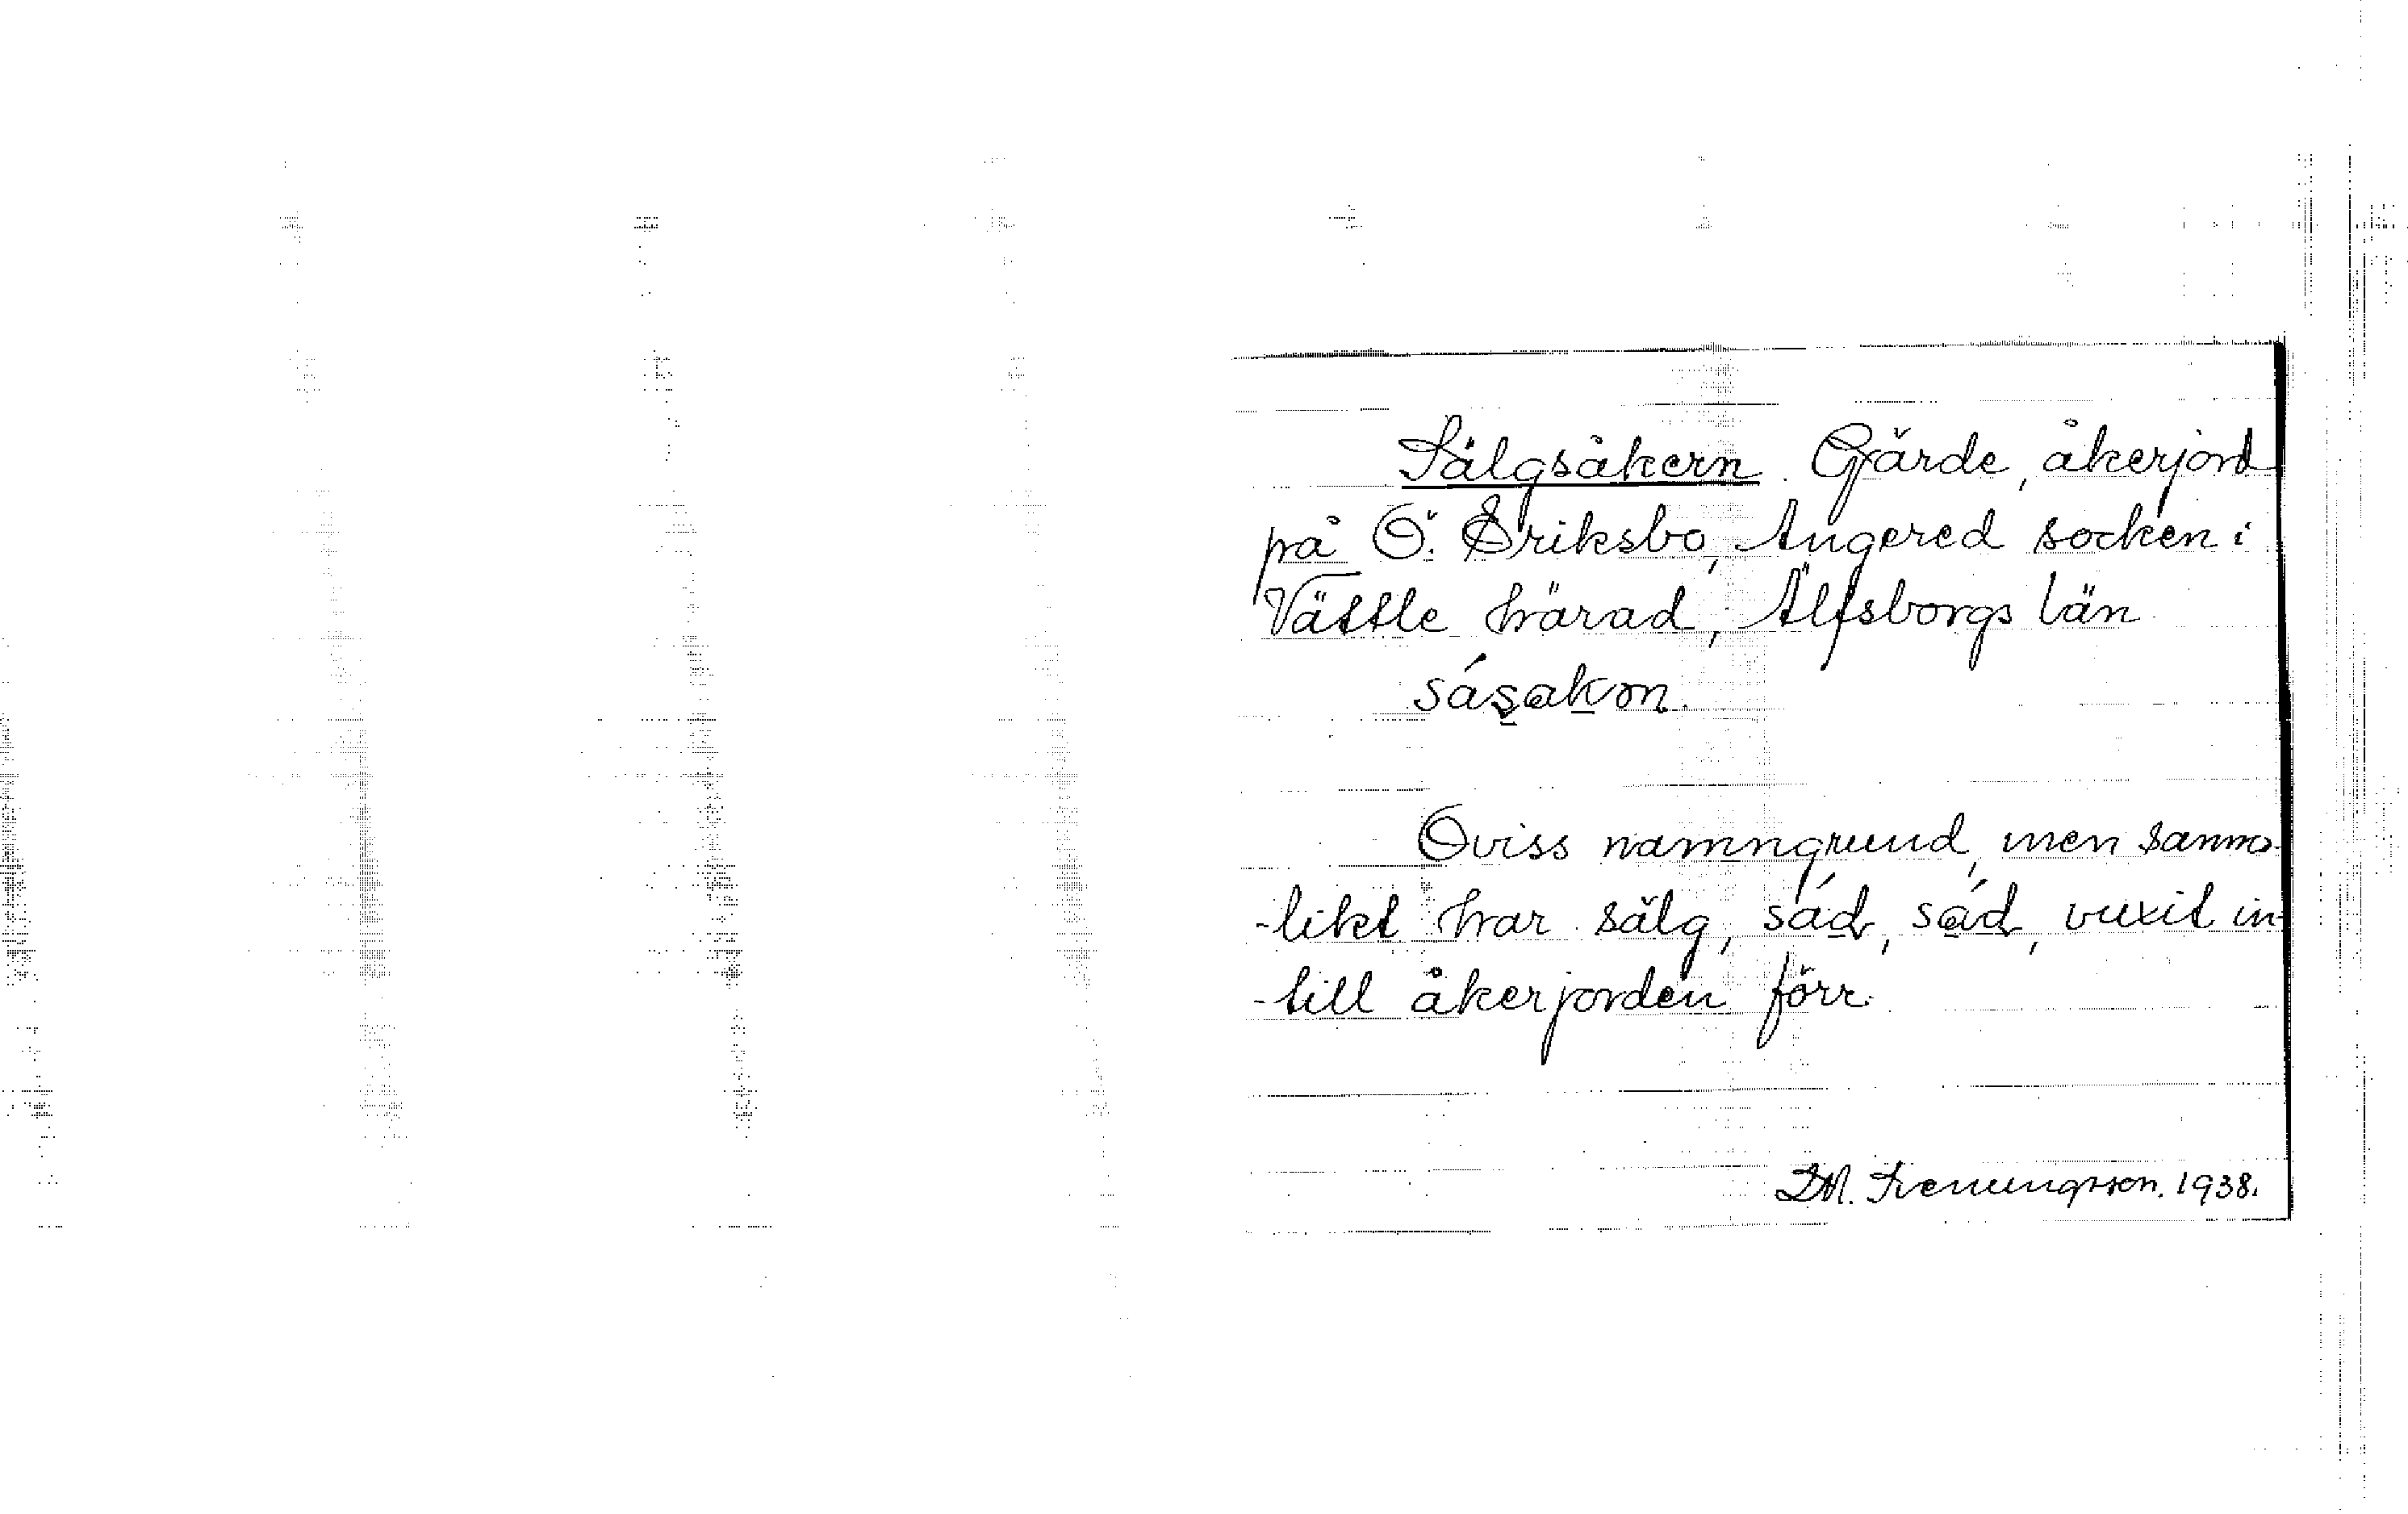 Sälgsåkern. Gärde, åkerjord
på Ö. Eriksbo, Angered socken i
Vättle härad, Älfsborgs län
sásakon.
Oviss namngrund, men sanno-
-likt har sälg, sád, séd, vuxit in-
-till åkerjorden förr.
1938.